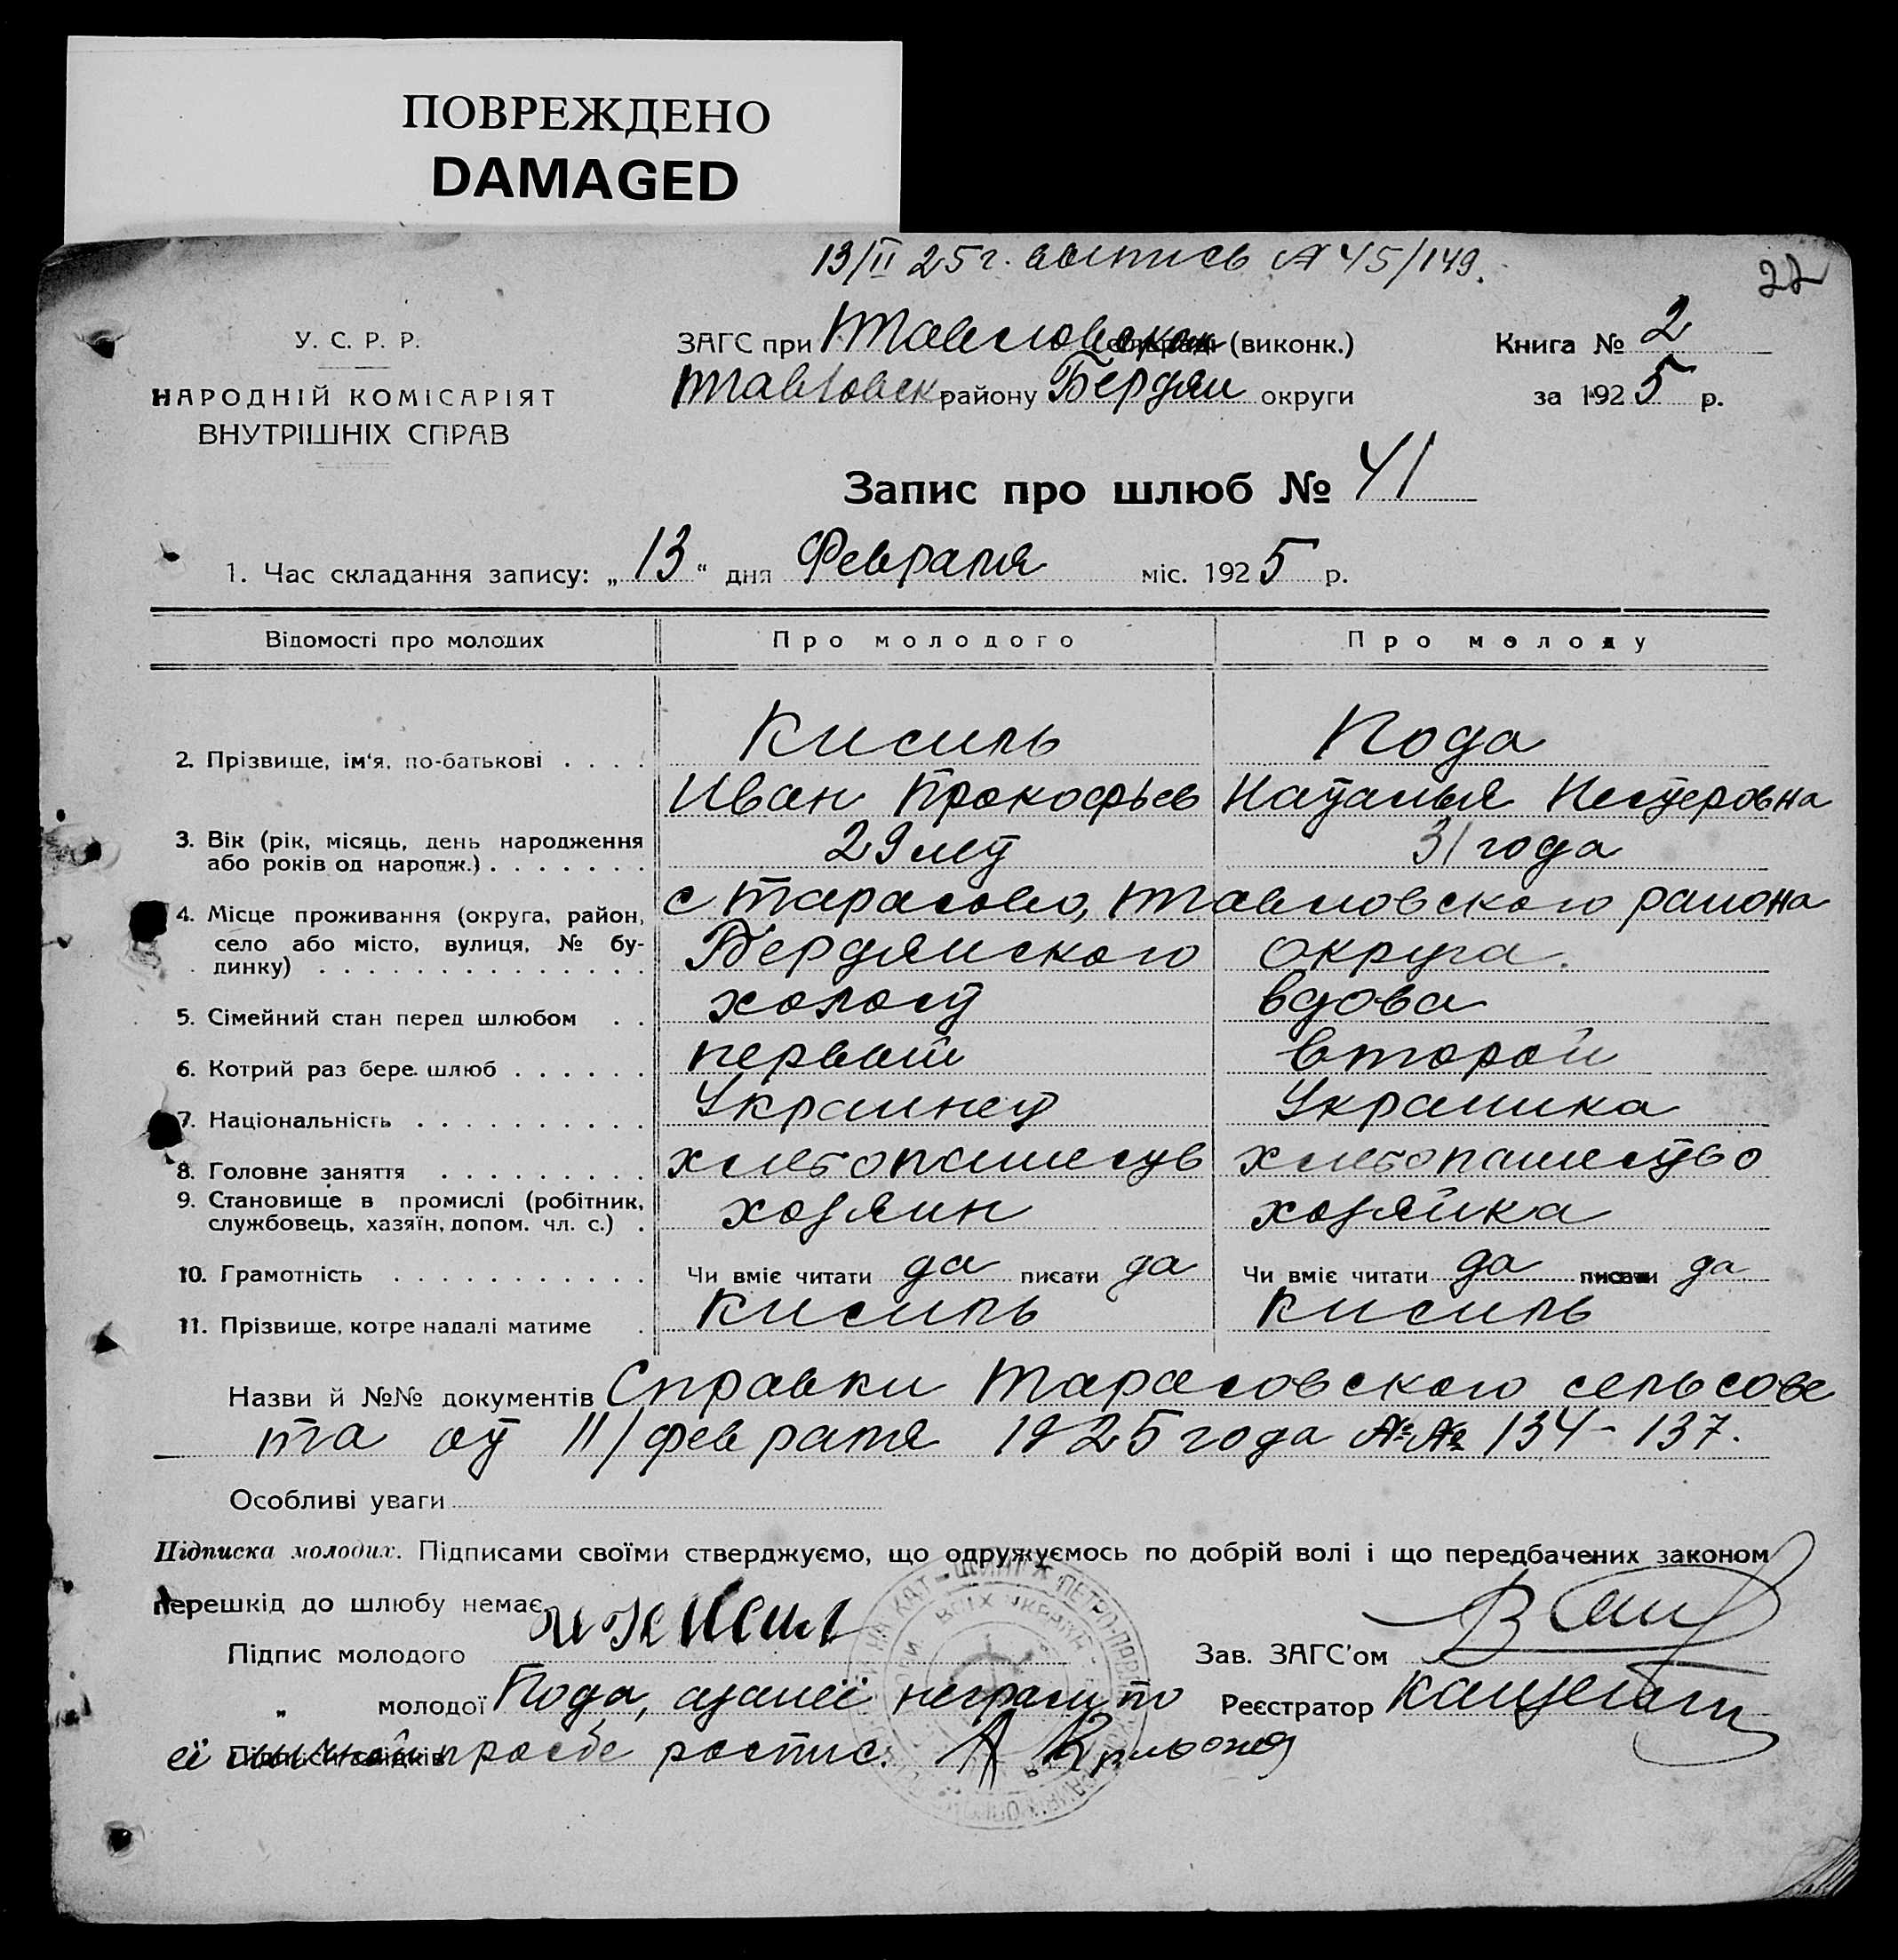 ПОВРЕЖДЕНО
DAMAGED
13/II 25 г. выпись № 45/149.
22
У. С. Р. Р.
НАРОДНІЙ КОМІСАРІЯТ
ВНУТРІШНІХ СПРАВ
ЗАГС при (виконк.)
району Бердян округи
Книга № 2
за 1925 р.
Запис про шлюб № 41
1. Час складання запису: „13“ дня Февраля міс. 1925 р.
Відомості про молодих Про молодого Про молоду
2. Прізвище, ім'я, по-батькові . . . . Кисиль Пода
Иван Прокофьев Наталья Нестеровна
3. Вік (рік, місяць, день народження
або років од народж.) . . . . . . . 29 лет 31 года
4. Місце проживання (округа, район, с Тарасовки, района
село або місто, вулиця, № бу-
динку) . . . . . . . . . . . . . . Бердянского округа.
5. Сімейний стан перед шлюбом . . холост вдова
6. Котрий раз бере шлюб . . . . . . первый второй
7. Національність . . . . . . . . . . Украинец Украинка
8. Головне заняття . . . . . . . . . хлебопашеств хлебопашество
9. Становище в промислі (робітник,
службовець, хазяїн, допом. чл. с.) . хозяин хозяйка
10. Грамотність . . . . . . . . . . . Чи вміє читати да писати да Чи вміє читати да писати да
11. Прізвище, котре надалі матиме . Кисиль Кисиль
Назви й №№ документів Справки Тарасовского сельсове
та от 11/февраля 1925 года №№ 134-137.
Особливі уваги
Підписка молодих. Підписами своїми стверджуємо, що одружуємось по добрій волі і що передбачених законом
перешкід до шлюбу немає
Підпис молодого И Кисил
Зав. ЗАГС'ом
„ молодої Пода, а за неё неграмотн по
Реєстратор
её личной просьбе роспис. А
Підписи свідків